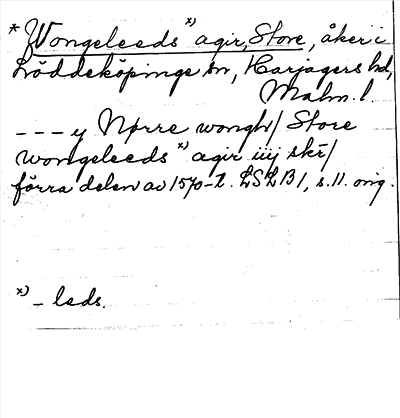 * Wongeleeds x) agir, Store, åker i
Löddeköpinge sn, Harjagers hd,
Malm. l.
--- y Nørre wongh/ Store
wongeleeds x) agir iiij skr/
förra delen av 1570-t. LSLB 1, s. 11. orig.
x) - leds.